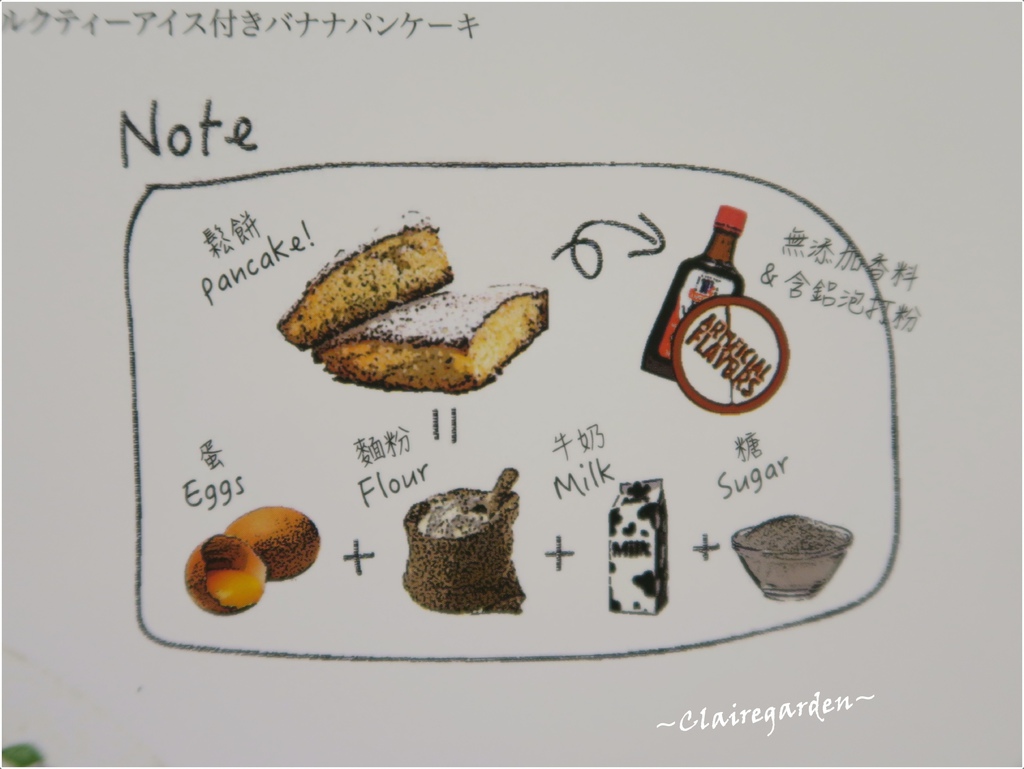 ルクティーアイス付きバナナパンケーキ
Note
鬆餅
pancake!
無添加香料
& 含鋁泡打粉
ARTIFICIAL
FLAVORS
蛋
Eggs
麵粉
Flour
牛奶
Milk
糖
Sugar
MilK
~Clairegarden~